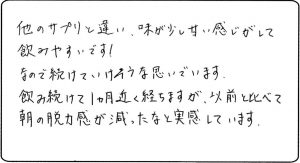 他のサプリと違い、味が少し甘い感じがして
飲みやすいです!
なので続けていけそうな思いでいます.
飲み続けて1ヵ月近く経ちますが、以前と比べて
朝の脱力感が減ったなと実感しています.